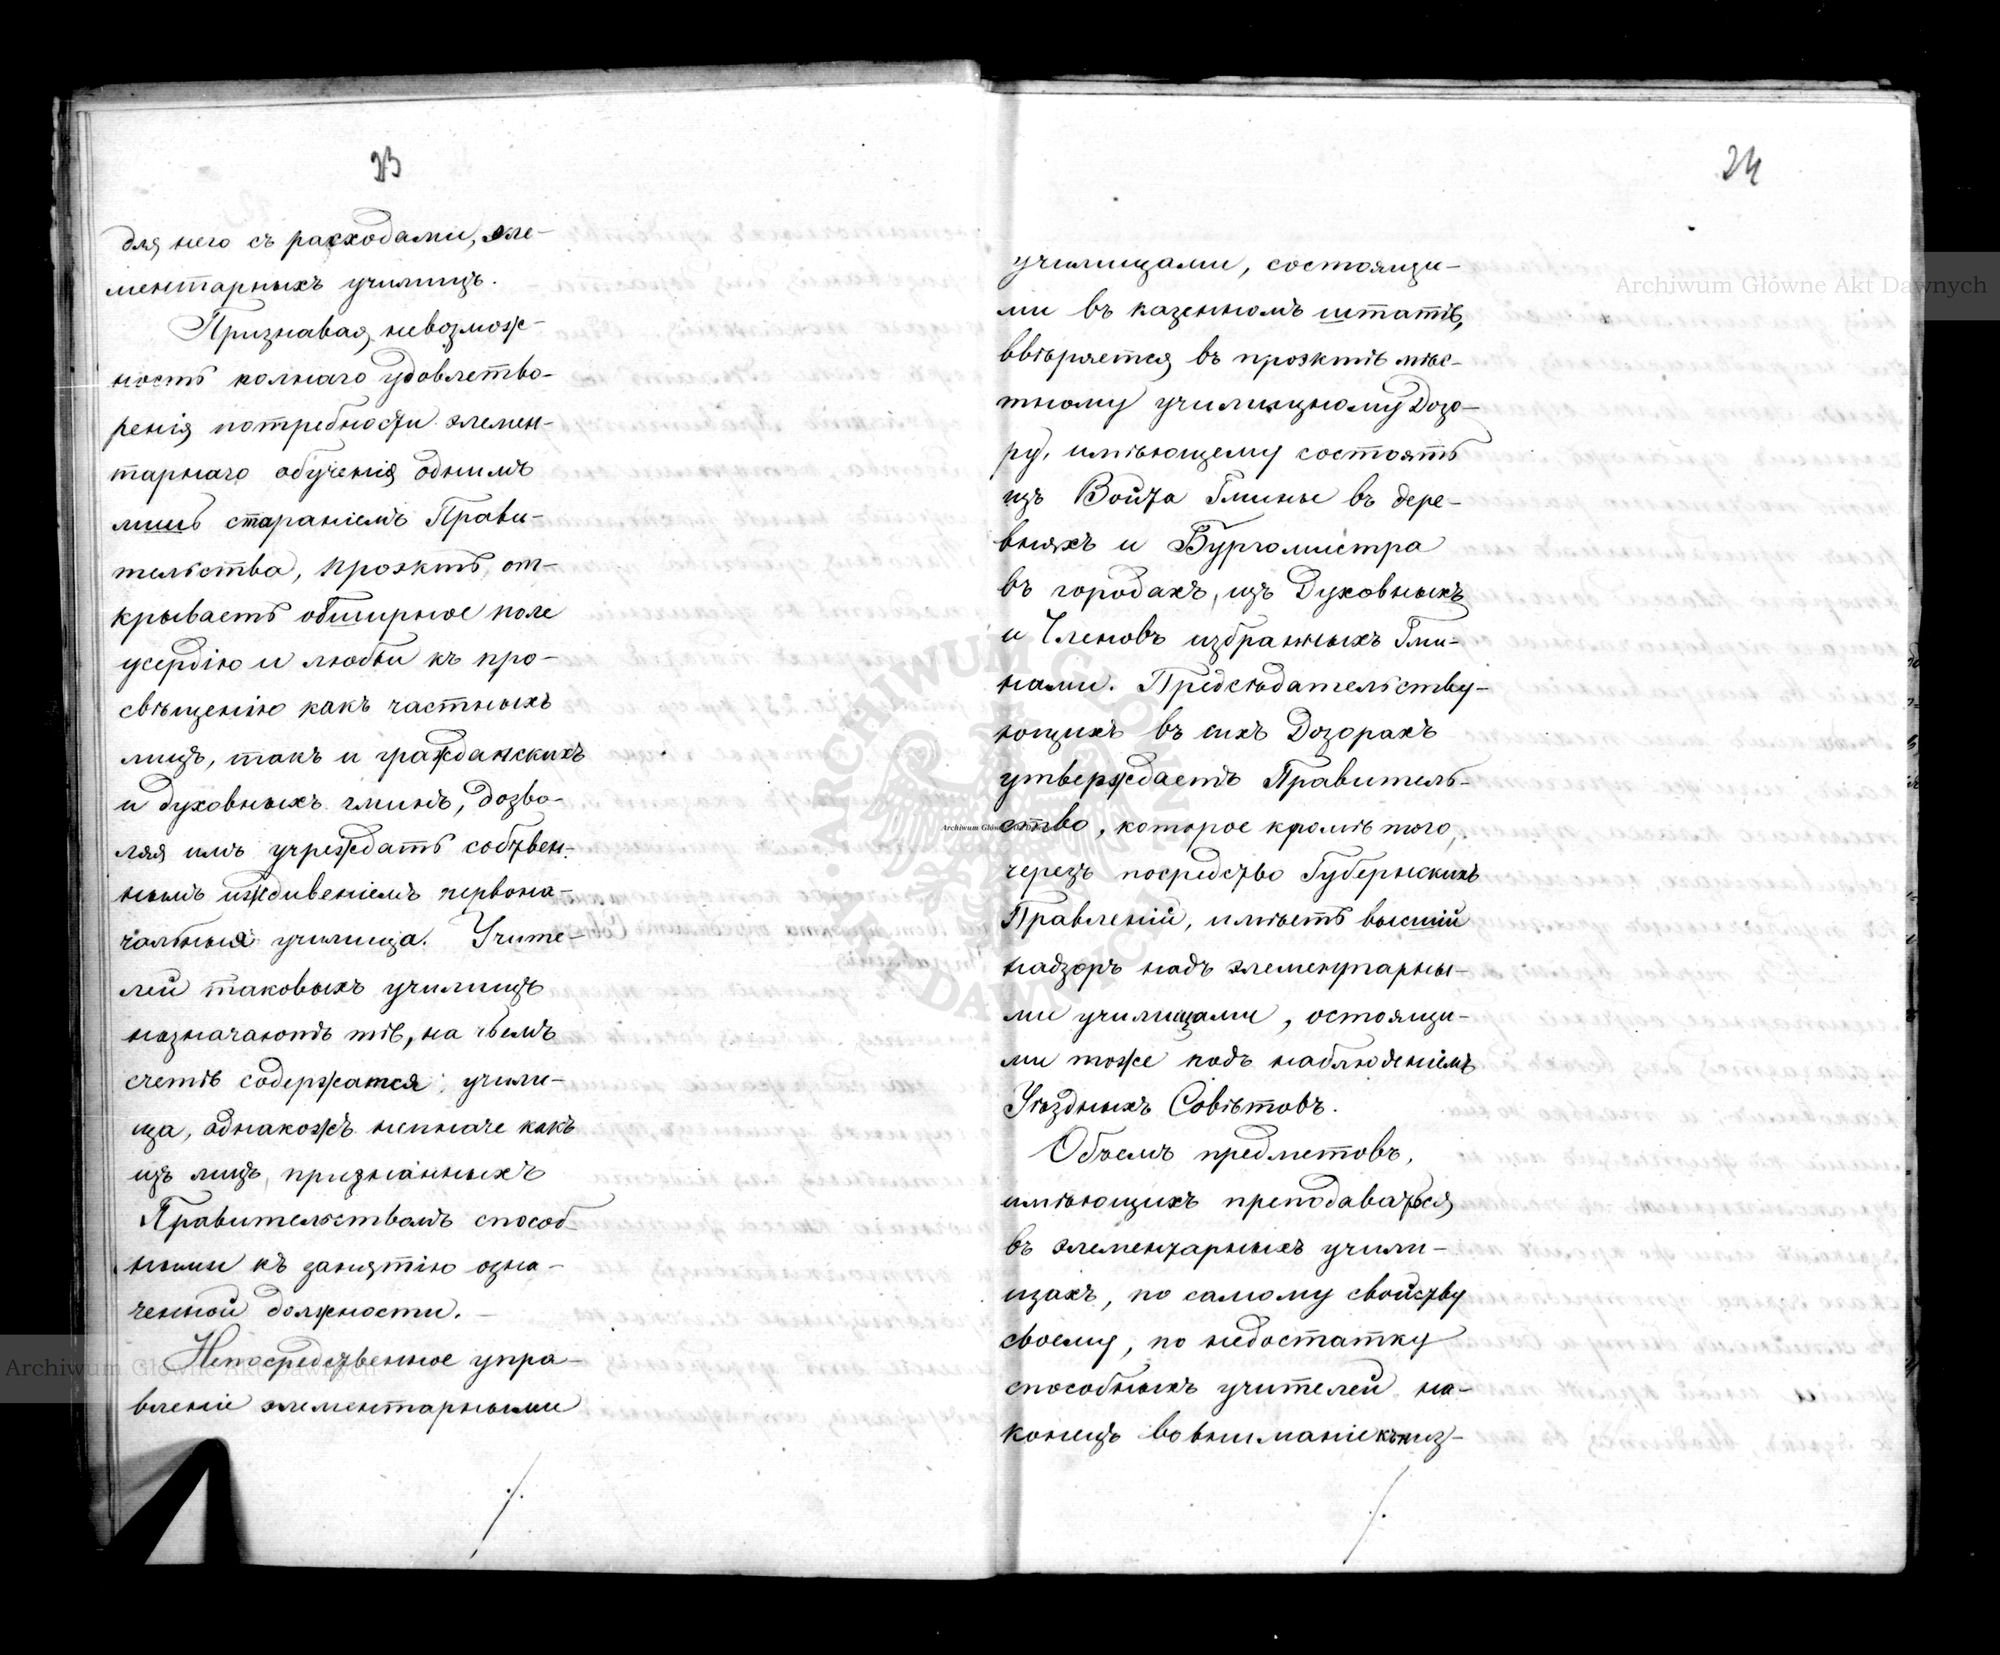 23
для него съ расходами, эле-
ментарныхъ училищъ.
Признавая невозмож-
ность полнаго удовлетво-
ренія потребности элемен-
тарнаго обученія однимъ
лишь стараніемъ Прави-
тельства, проэктъ от-
крываетъ обширное поле
усердію и любви къ про-
свѣщенію какъ частныхъ
лицъ, такъ и гражданскихъ
и духовныхъ гминъ, дозво-
ляя имъ учреждать собствен-
нымъ иждивеніемъ первона-
чальныя училища. Учите-
лей таковыхъ училищъ
назначаютъ тѣ, на чьемъ
счетѣ содержатся учили-
ща, однакожъ неиначе какъ
изъ лицъ признанныхъ
Правительствомъ способ-
ными къ занятію озна-
ченной должности. —
Непосредственное упра-
вленіе элементарными
./.
24
училищами, состоящи-
ми въ казенномъ штатѣ,
ввѣряется въ проэктѣ мѣс-
тному училищному Дозо-
ру, имѣющему состоять
изъ Войта Гмины въ дере-
вняхъ и Бургомистра
въ городахъ, изъ Духовныхъ
и Членовъ избранныхъ Гми-
нами. Предсѣдательству-
ющихъ въ сихъ Дозорахъ
утверждаетъ Правитель-
ство, которое кромѣ того,
черезъ посредство Губернскихъ
Правленій, имѣетъ высшій
надзоръ надъ элементарны-
ми училищами, остоящи-
ми тоже подъ наблюденіемъ
Уѣздныхъ Совѣтовъ.
Объемъ предметовъ,
имѣющихъ преподаваться
въ элементарныхъ учили-
щахъ, по самому свойству
своему, по недостатку
способныхъ учителей на-
конецъ во вниманіе къ низ-
./.
Archiwum Główne Akt Dawnych
Archiwum Główne Akt Dawnych
ARCHIWUM GŁÓWNE AKT DAWNYCH